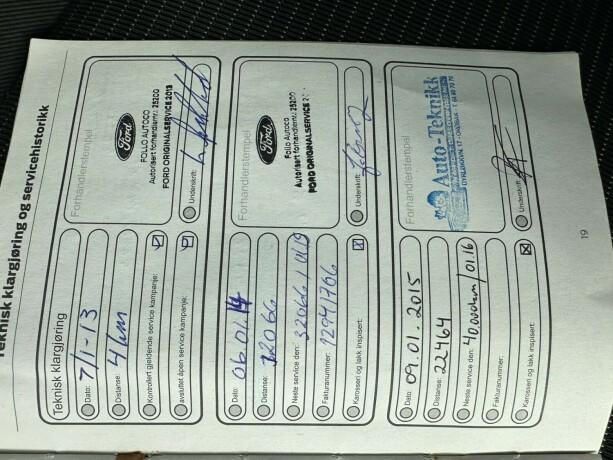 Teknisk klargjøring og servicehistorikk
Teknisk klargjøring
Dato: 7/1-13
Distanse: 4 km
Kontrollert gjeldende service kampanje:
avsluttet åpen service kampanje:
Forhandlerstempel
Ford
FOLLO AUTOCO
Autorisert forhandlernr. 25200
FORD ORIGINALSERVICE 2013
Underskrift:
Dato: 06 01.14
Distanse:
Neste service den: 32066 / 01.15
Fakturanummer: 12941766
Karosseri og lakk inspisert:
Forhandlerstempel
Ford
FOLLO AUTOCO
Autorisert forhandlernr. 25200
FORD ORIGINALSERVICE
Underskrift:
Dato: 09.01.2015
Distanse: 22464
Neste service den: 40,000km / 01.16
Fakturanummer:
Karosseri og lakk inspisert:
Forhandlerstempel
Auto-Teknikk
Underskrift:
19